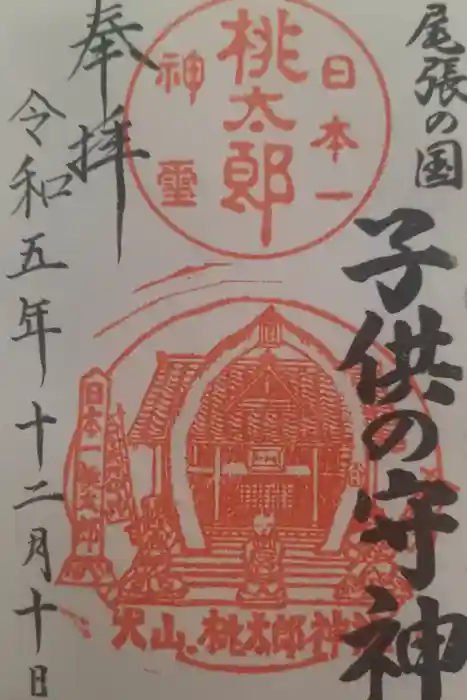 尾張の国
子供の守神
日本一
桃太郎
神霊
奉拝
令和五年十二月十日
日本一桃太郎
犬山桃太郎神社